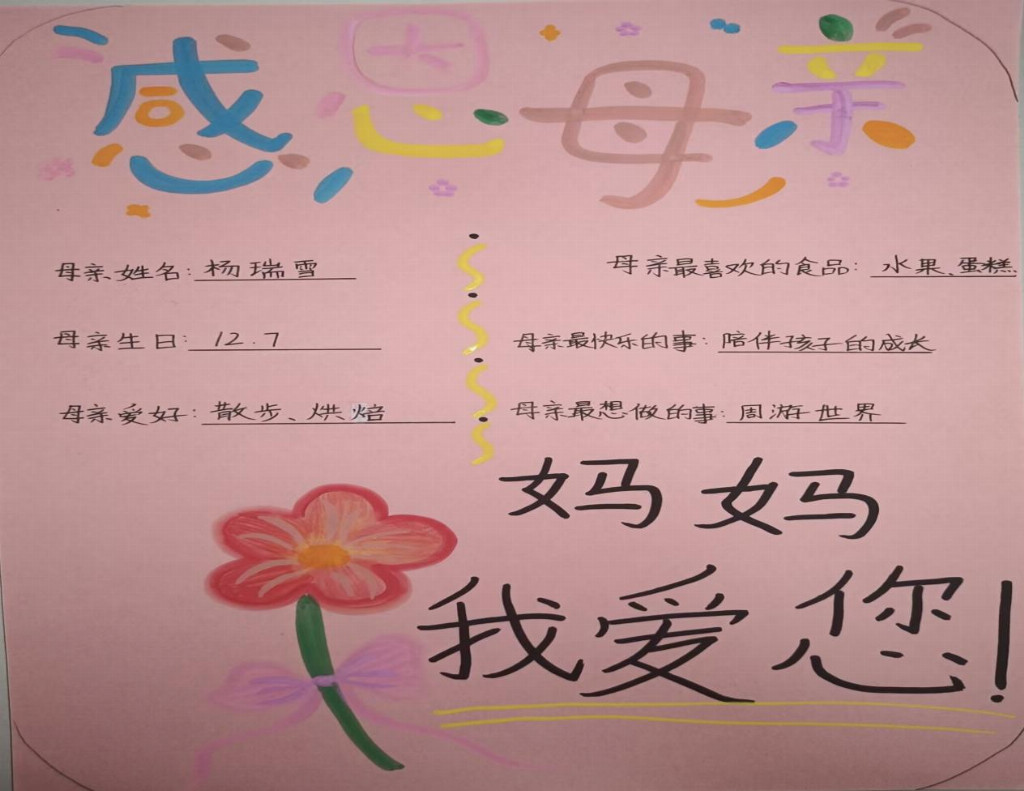 感恩母亲
母亲姓名：杨瑞雪
母亲最喜欢的食品：水果、蛋糕
母亲生日：12.7
母亲最快乐的事：陪伴孩子的成长
母亲爱好：散步、烘焙
母亲最想做的事：周游世界
妈妈
我爱您！